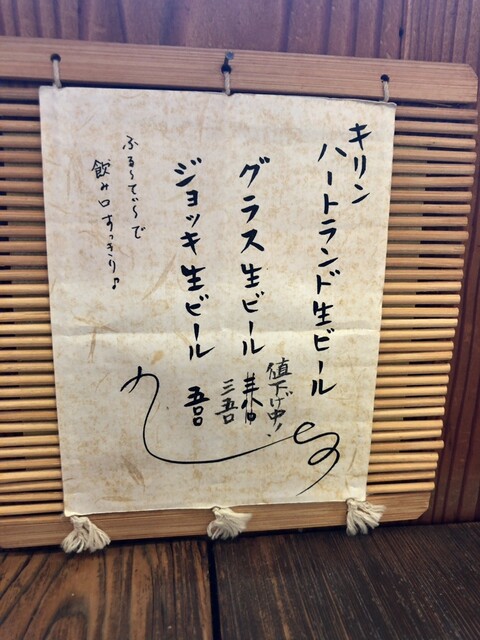 キリン
ハートランド生ビール
グラス生ビール
値下げ中!
三五〇
ジョッキ生ビール 五〇〇
ふる〜てぃ〜で
飲み口すっきり♪